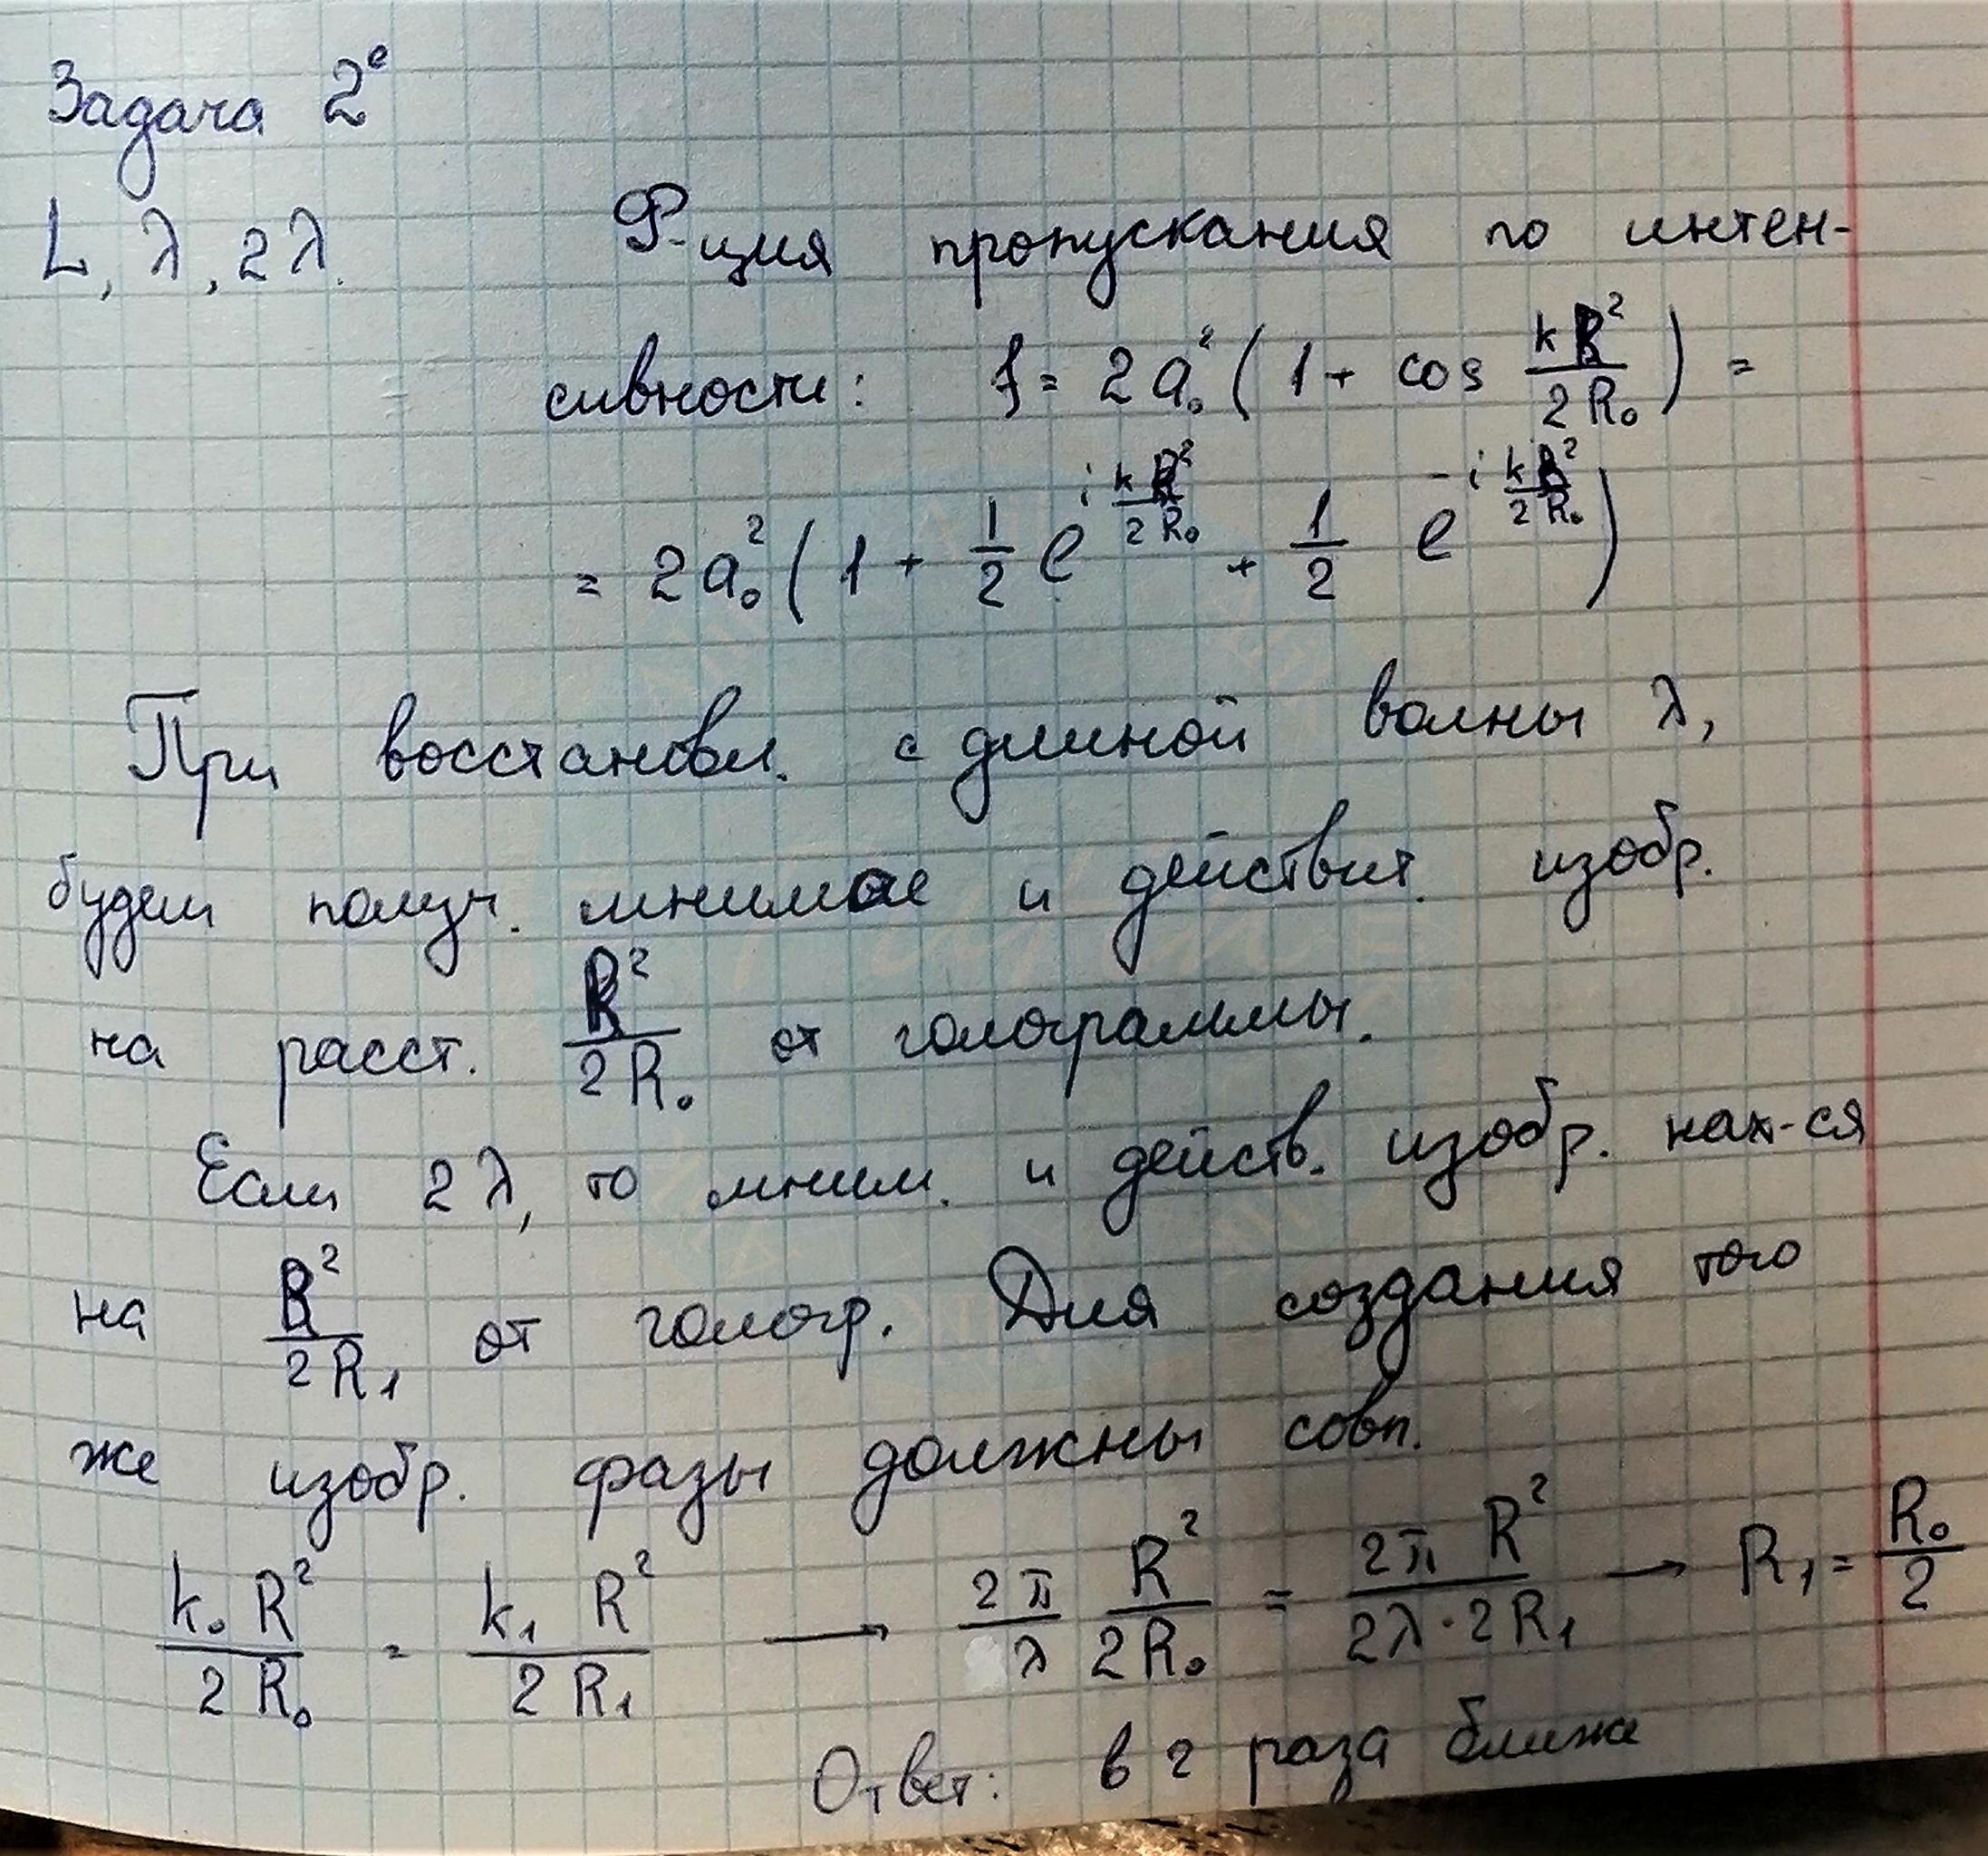 Задача 2е
L, λ, 2λ. Ф-ция пропускания по интен-
сивности: f = 2a₀² (1 + cos kR²/2R₀) =
= 2a₀² (1 + 1/2 e^(i kR²/2R₀) + 1/2 e^(-i kR²/2R₀))
При восстановл. с длиной волны λ,
будем получ. мнимое и действит. изобр.
на расст. R²/2R₀ от голограммы.
Если 2λ, то мним. и действ. изобр. нах-ся
на R²/2R₁ от гологр. Для создания того
же изобр. фазы должны совп.
k₀R²/2R₀ = k₁R²/2R₁ → 2π/λ R²/2R₀ = 2πR²/2λ·2R₁ → R₁ = R₀/2
Ответ: в 2 раза ближе